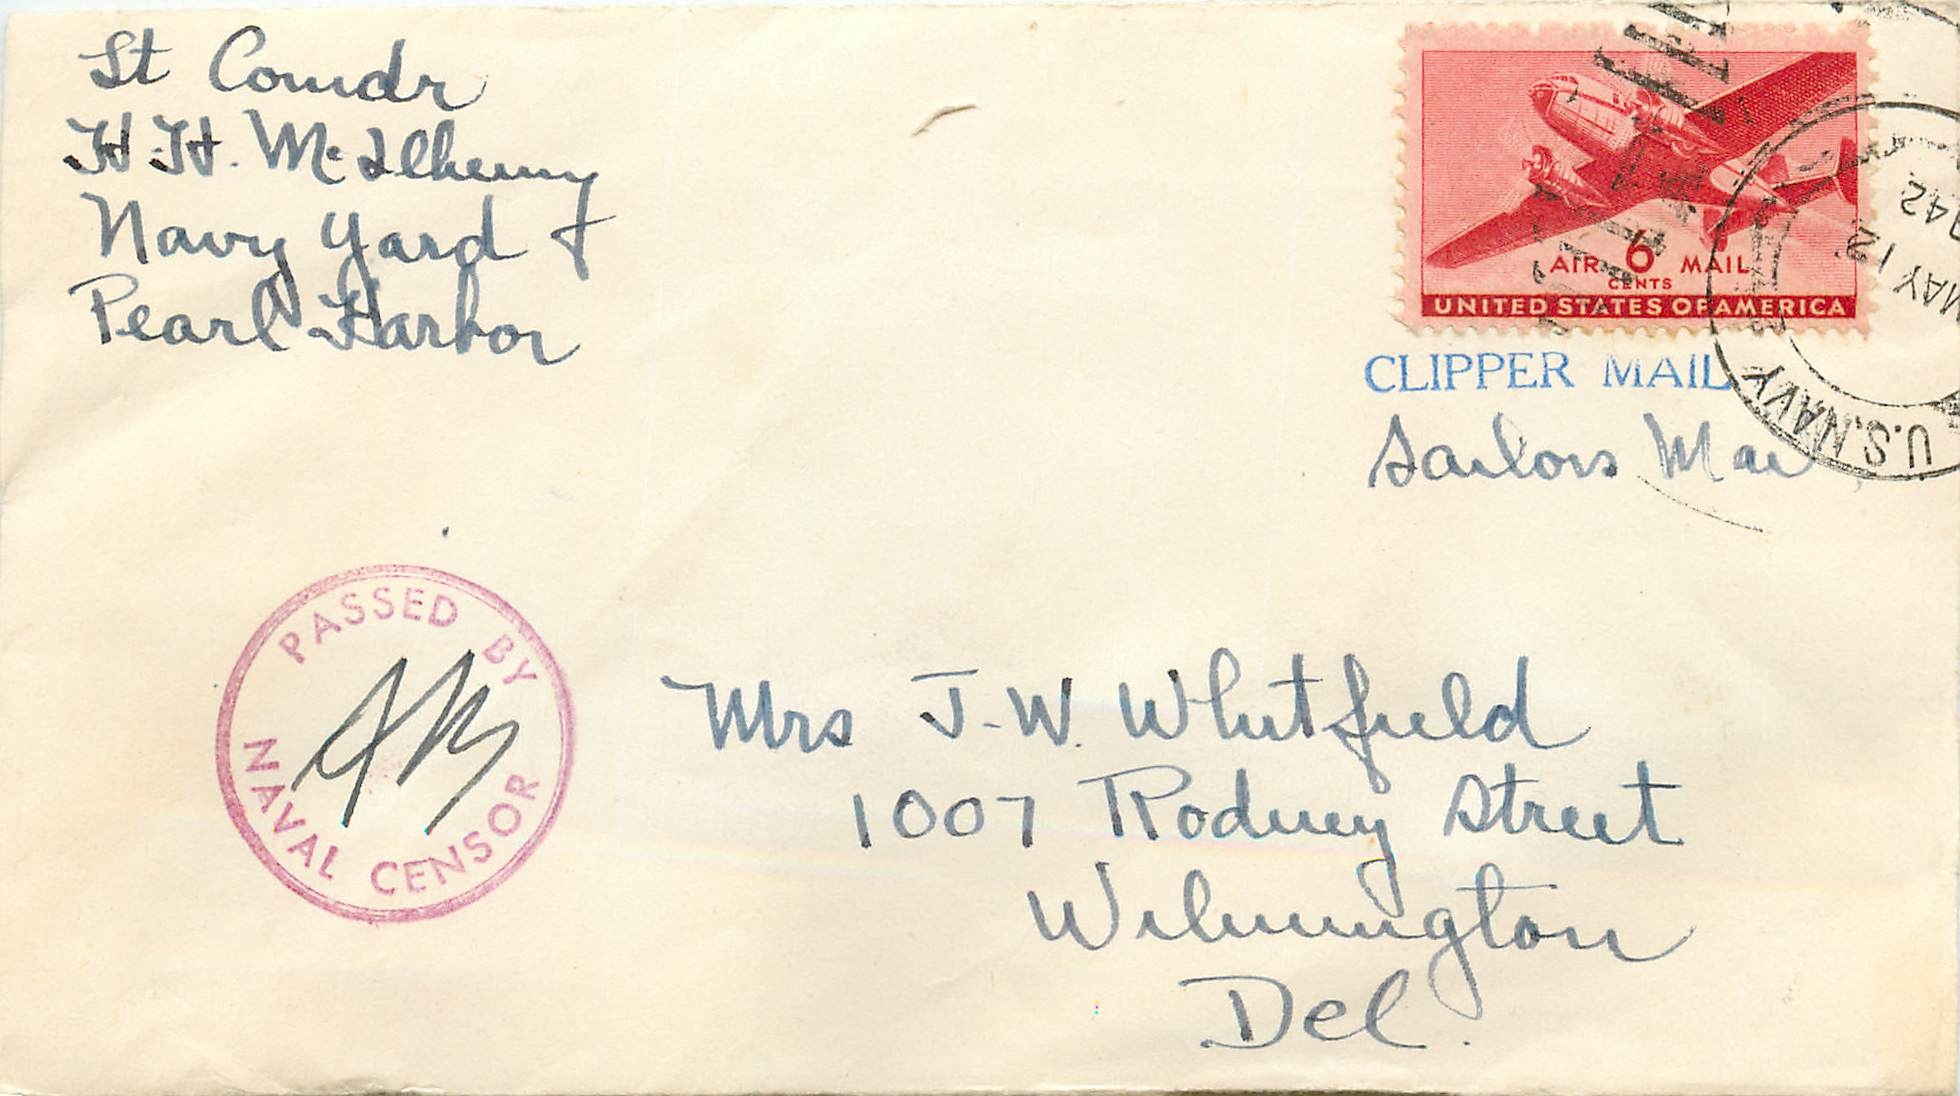 Lt Comdr
H.H. McIlhenny
Navy Yard
Pearl Harbor
AIR 6 MAIL
CENTS
UNITED STATES OF AMERICA
CLIPPER MAIL
Sailors Mail
U.S. NAVY
MAY 12
1942
PASSED BY
NAVAL CENSOR
Mrs J-W. Whitfield
1007 Rodney Street
Wilmington
Del.